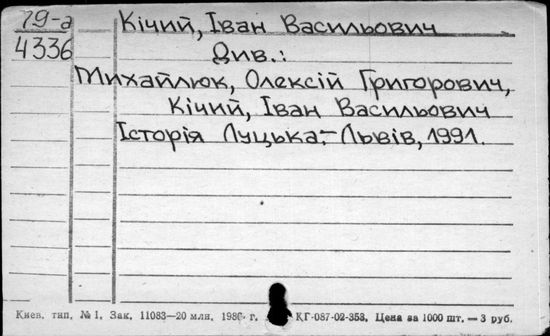 79-а
4336
Кічий, Іван Васильович
Див.:
Михайлюк, Олексій Григорович,
Кічий, Іван Васильович
Історія Луцька.- Львів, 1991.
Киев. тип. № 1. Зак. 11083—20 млн. 1986 г. КГ-087-02-353. Цена за 1000 шт. — 3 руб.